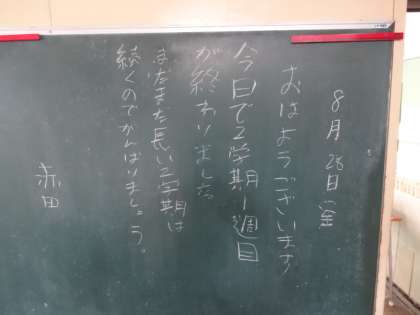 8月28日(金)
おはようございます
今日で2学期1週目
が終わりました
まだまだ長い2学期は
続くのでがんばりましょう。
赤田